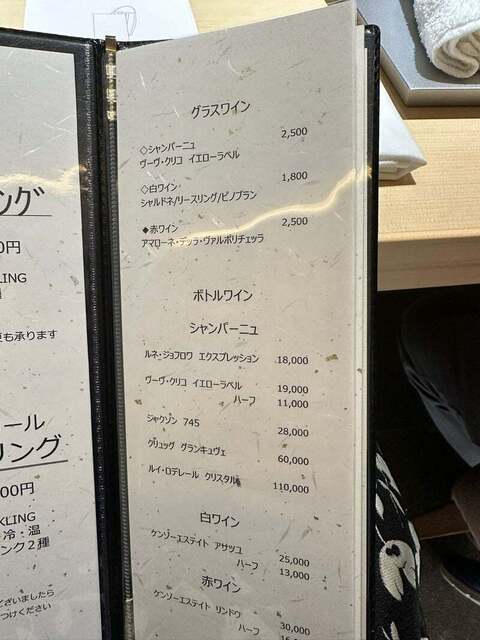 ング
0円
LING
も承ります
ール
リング
00円
KLING
冷:温
ンク2種
ございましたら
つけください
グラスワイン
◇シャンパーニュ 2,500
ヴーヴ・クリコ イエローラベル
◇白ワイン 1,800
シャルドネ/リースリング/ピノブラン
◆赤ワイン 2,500
アマローネ・デッラ・ヴァルポリチェッラ
ボトルワイン
シャンパーニュ
ルネ・ジョフロワ エクスプレッション 18,000
ヴーヴ・クリコ イエローラベル 19,000
ハーフ 11,000
ジャクソン 745 28,000
クリュッグ グランキュヴェ 60,000
ルイ・ロデレール クリスタル 110,000
白ワイン
ケンゾーエステイト アサツユ 25,000
ハーフ 13,000
赤ワイン
ケンゾーエステイト リンドウ 30,000
ハーフ